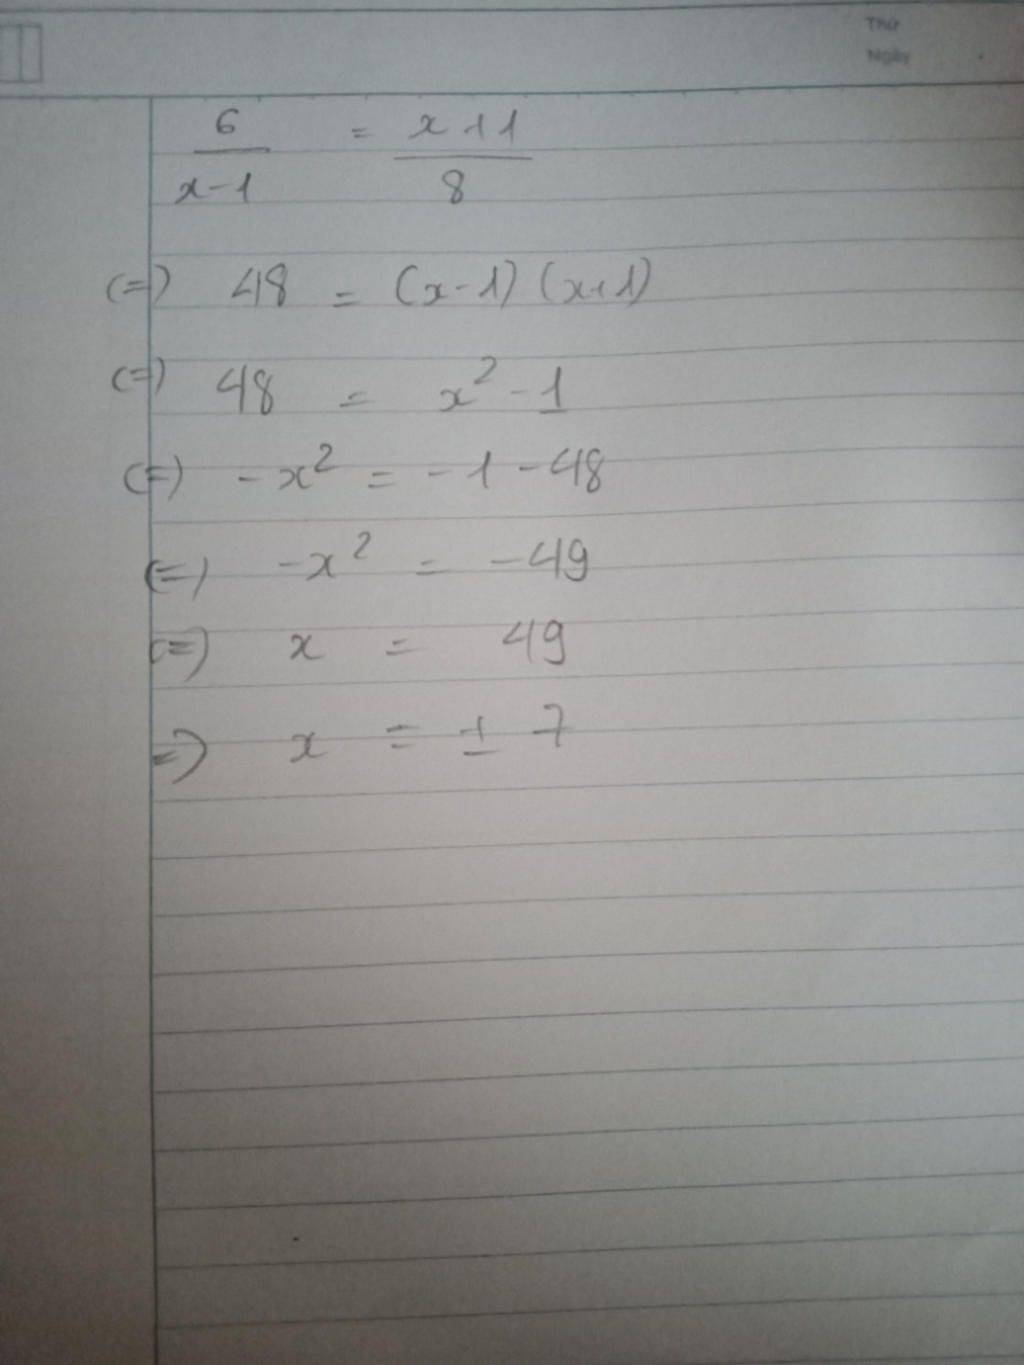 Thứ
Ngày
6/(x-1) = (x+1)/8
(=) 48 = (x-1) (x+1)
(=) 48 = x² - 1
(=) -x² = -1 -48
(=) -x² = -49
(=) x = 49
=) x = ± 7